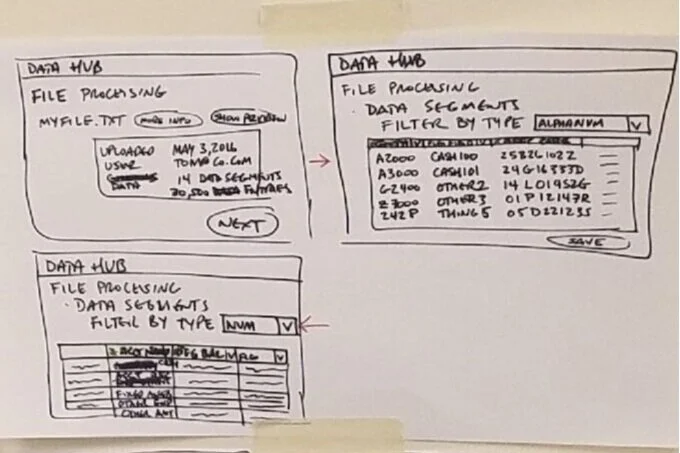 DATA HUB
FILE PROCESSING
MYFILE.TXT MORE INFO SHOW PREVIEW
UPLOADED MAY 3, 2016
USER TOM@CO.COM
DATA 14 DATA SEGMENTS
30,500 ENTRIES
NEXT
DATA HUB
FILE PROCESSING
· DATA SEGMENTS
FILTER BY TYPE ALPHANUM V
A2000 CASH100 2582G1022
A3000 CASH101 24G16353D
G2400 OTHER2 14L01952G
Z7000 OTHER3 01P12147R
242P THING5 05D221235
SAVE
DATA HUB
FILE PROCESSING
· DATA SEGMENTS
FILTER BY TYPE NUM V
BEG BAL V
FIXED
OTHER
OTHER AMT